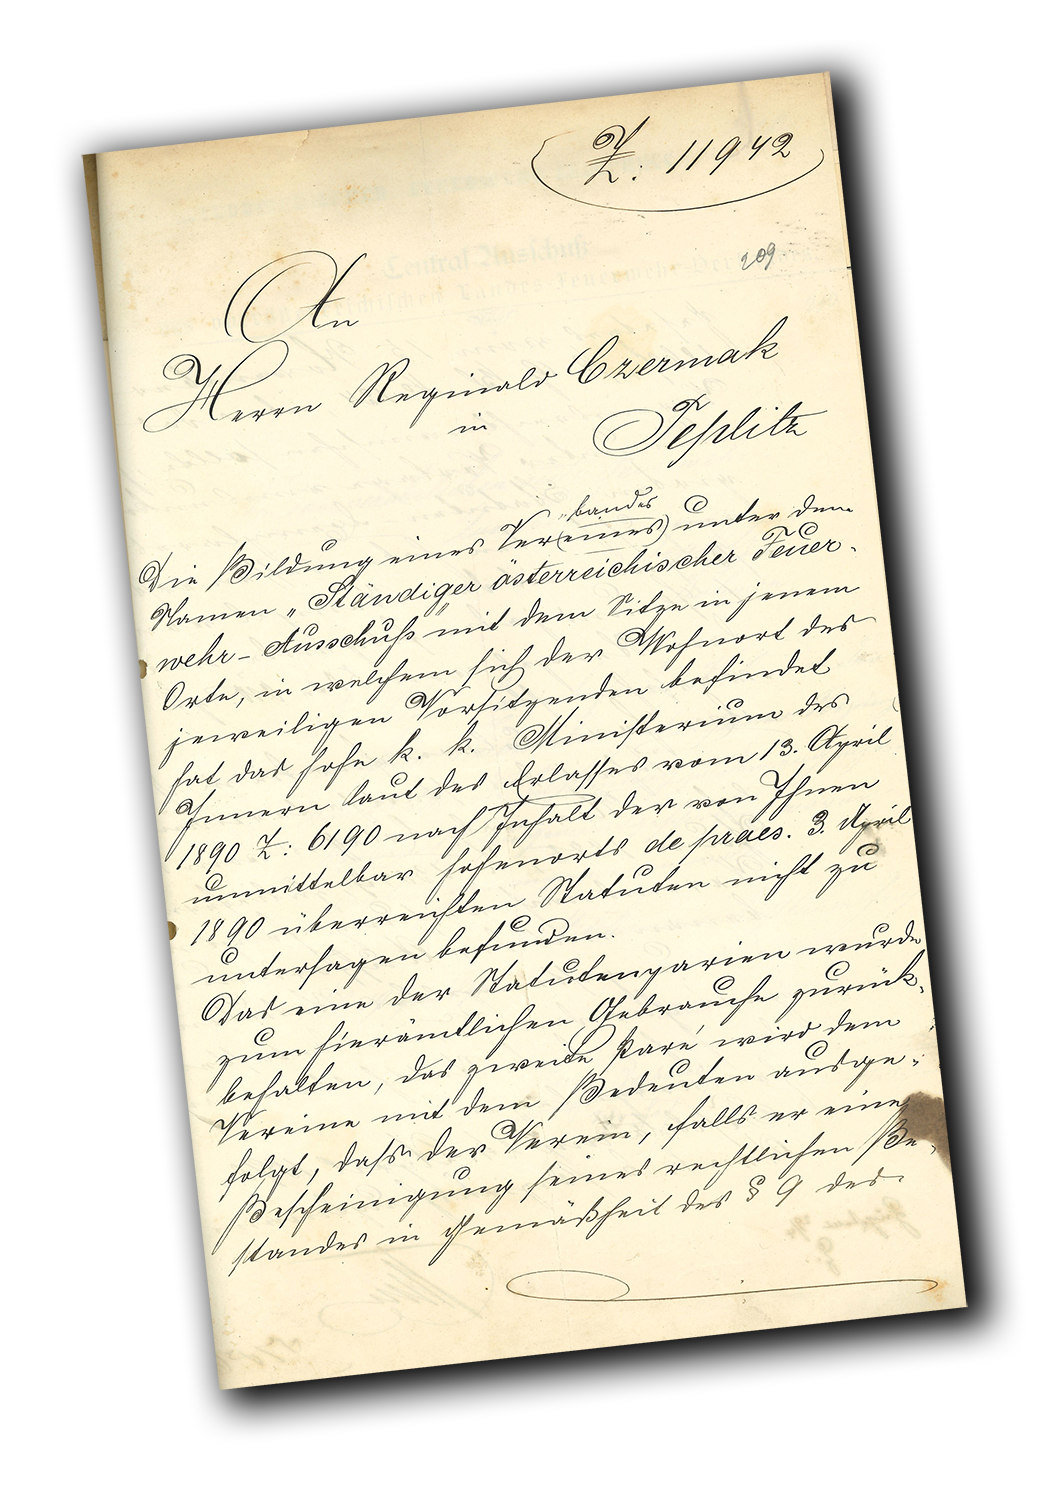 Z: 11942
209
An
Herrn Reginald Czermak
in Teplitz
„bandes
Die Bildung eines Ver(eines) unter dem
Namen „Ständiger österreichischer Feuer-
wehr-Ausschuß" mit dem Sitze in jenem
Orte, in welchem sich der Wohnort des
jeweiligen Vorsitzenden befindet
hat das hohe k. k. Ministerium des
Innern laut des Erlasses vom 13. April
1890 Z: 6190 nach Inhalt der von Ihnen
unmittelbar hohenorts de praes. 3. April
1890 überreichten Statuten nicht zu
untersagen befunden.
Das eine der Statutenparien wurde
zum hierämtlichen Gebrauche zurück-
behalten, das zweite Paré wird dem
Vereine mit dem Bedeuten ausge-
folgt, dass der Verein, falls er eine
Bescheinigung seines rechtlichen Be-
standes in Gemäßheit des § 9 des